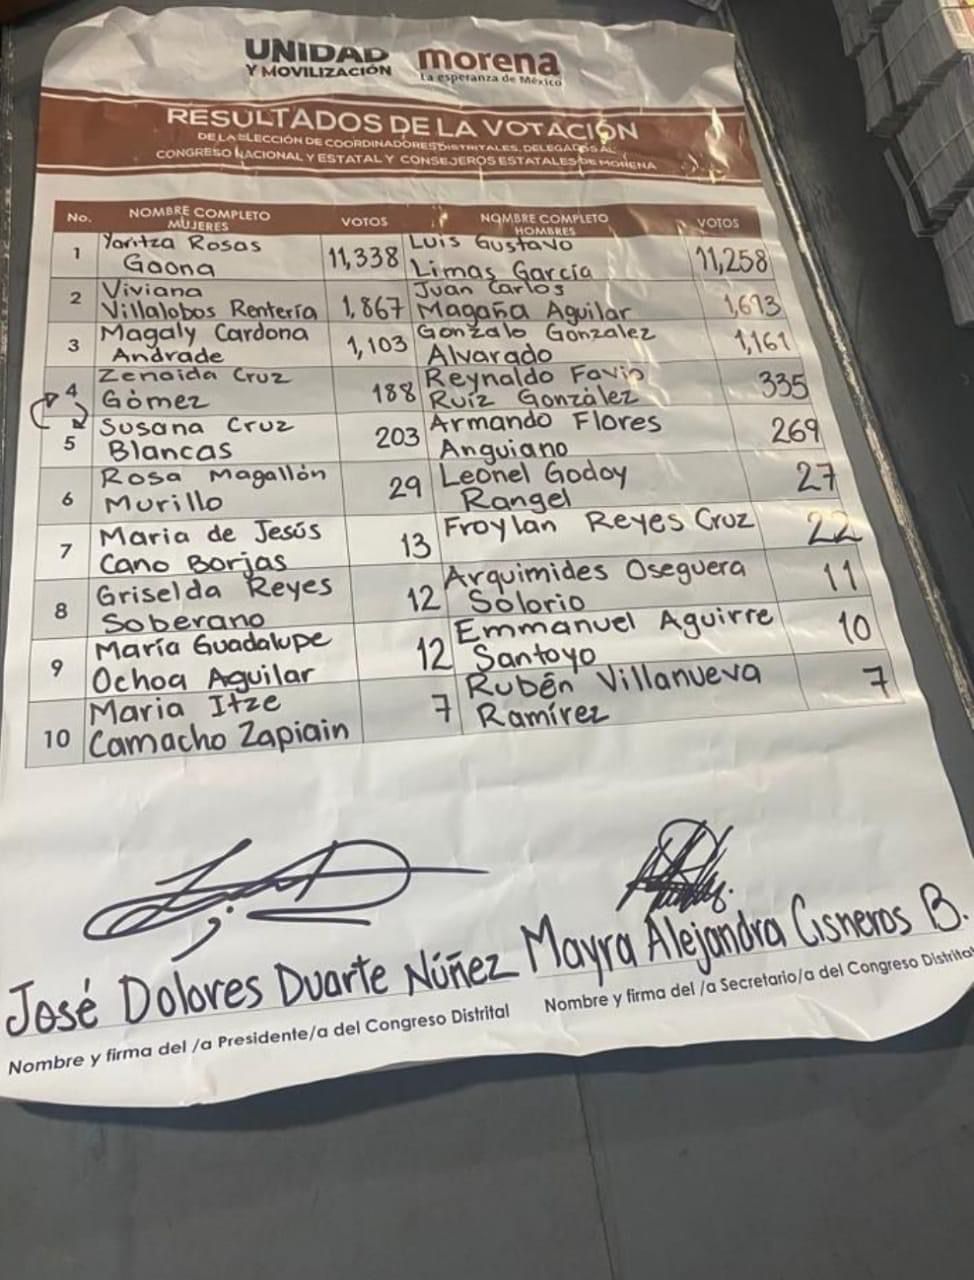 UNIDAD
Y MOVILIZACIÓN
morena
La esperanza de México
RESULTADOS DE LA VOTACIÓN
DE LA ELECCIÓN DE COORDINADORES DISTRITALES, DELEGADOS AL
CONGRESO NACIONAL Y ESTATAL Y CONSEJEROS ESTATALES DE MORENA
No. NOMBRE COMPLETO MUJERES VOTOS NOMBRE COMPLETO HOMBRES VOTOS
1 Yaritza Rosas Gaona 11,338 Luis Gustavo Limas García 11,258
2 Viviana Villalobos Rentería 1,867 Juan Carlos Magaña Aguilar 1,693
3 Magaly Cardona Andrade 1,103 Gonzalo Gonzalez Alvarado 1,161
4 Zenaida Cruz Gómez 188 Reynaldo Favio Ruíz González 335
5 Susana Cruz Blancas 203 Armando Flores Anguiano 269
6 Rosa Magallón Murillo 29 Leonel Godoy Rangel 27
7 Maria de Jesús Cano Borjas 13 Froylan Reyes Cruz 22
8 Griselda Reyes Soberano 12 Arquimides Oseguera Solorio 11
9 María Guadalupe Ochoa Aguilar 12 Emmanuel Aguirre Santoyo 10
10 Maria Itze Camacho Zapiain 7 Rubén Villanueva Ramírez 7
José Dolores Duarte Núñez
Nombre y firma del /a Presidente/a del Congreso Distrital
Mayra Alejandra Cisneros B.
Nombre y firma del /a Secretario/a del Congreso Distrital